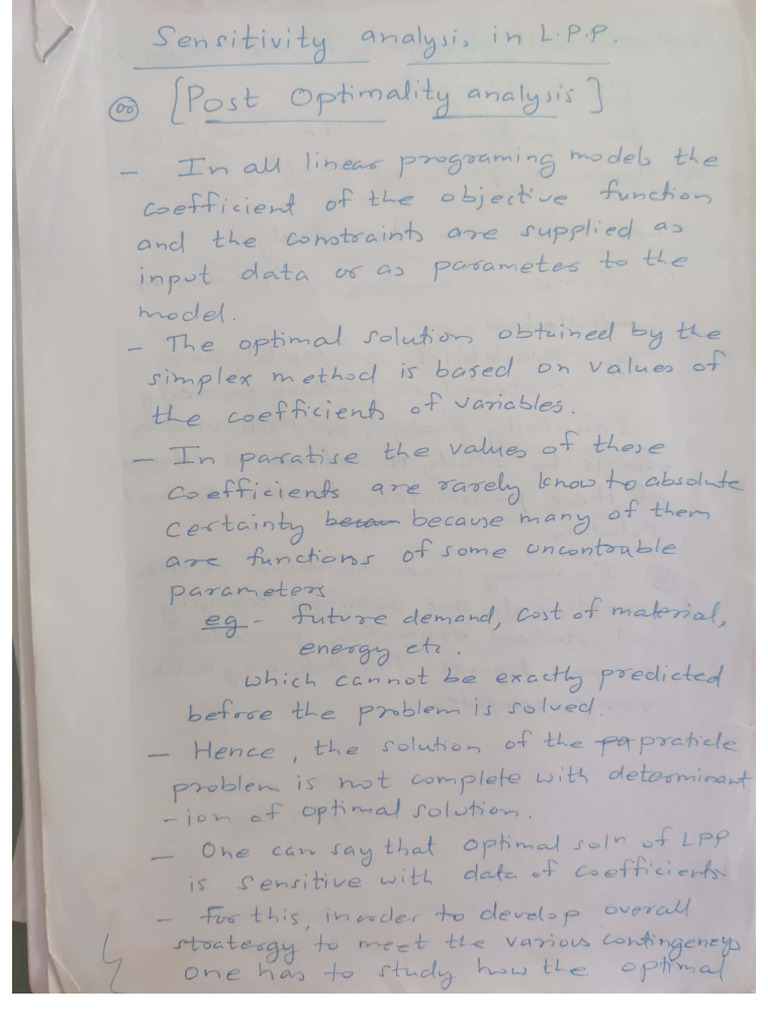 Sensitivity analysis, in L.P.P.
(or) [Post Optimality analysis]
- In all linear programing models the
coefficient of the objective function
and the constraints are supplied as
input data or as parameter to the
model.
- The optimal solution obtained by the
simplex method is based on values of
the coefficients of variables.
- In paratise the values of these
coefficients are rarely know to absolute
certainty because many of them
are functions of some uncontroable
parameters
eg - future demand, cost of material,
energy etc.
which cannot be exactly predicted
before the problem is solved.
- Hence, the solution of the praticle
problem is not complete with determinant
-ion of optimal solution.
- One can say that optimal soln of LPP
is sensitive with data of coefficients
- For this, inorder to develop overall
stratergy to meet the various contingencys
one has to study how the optimal